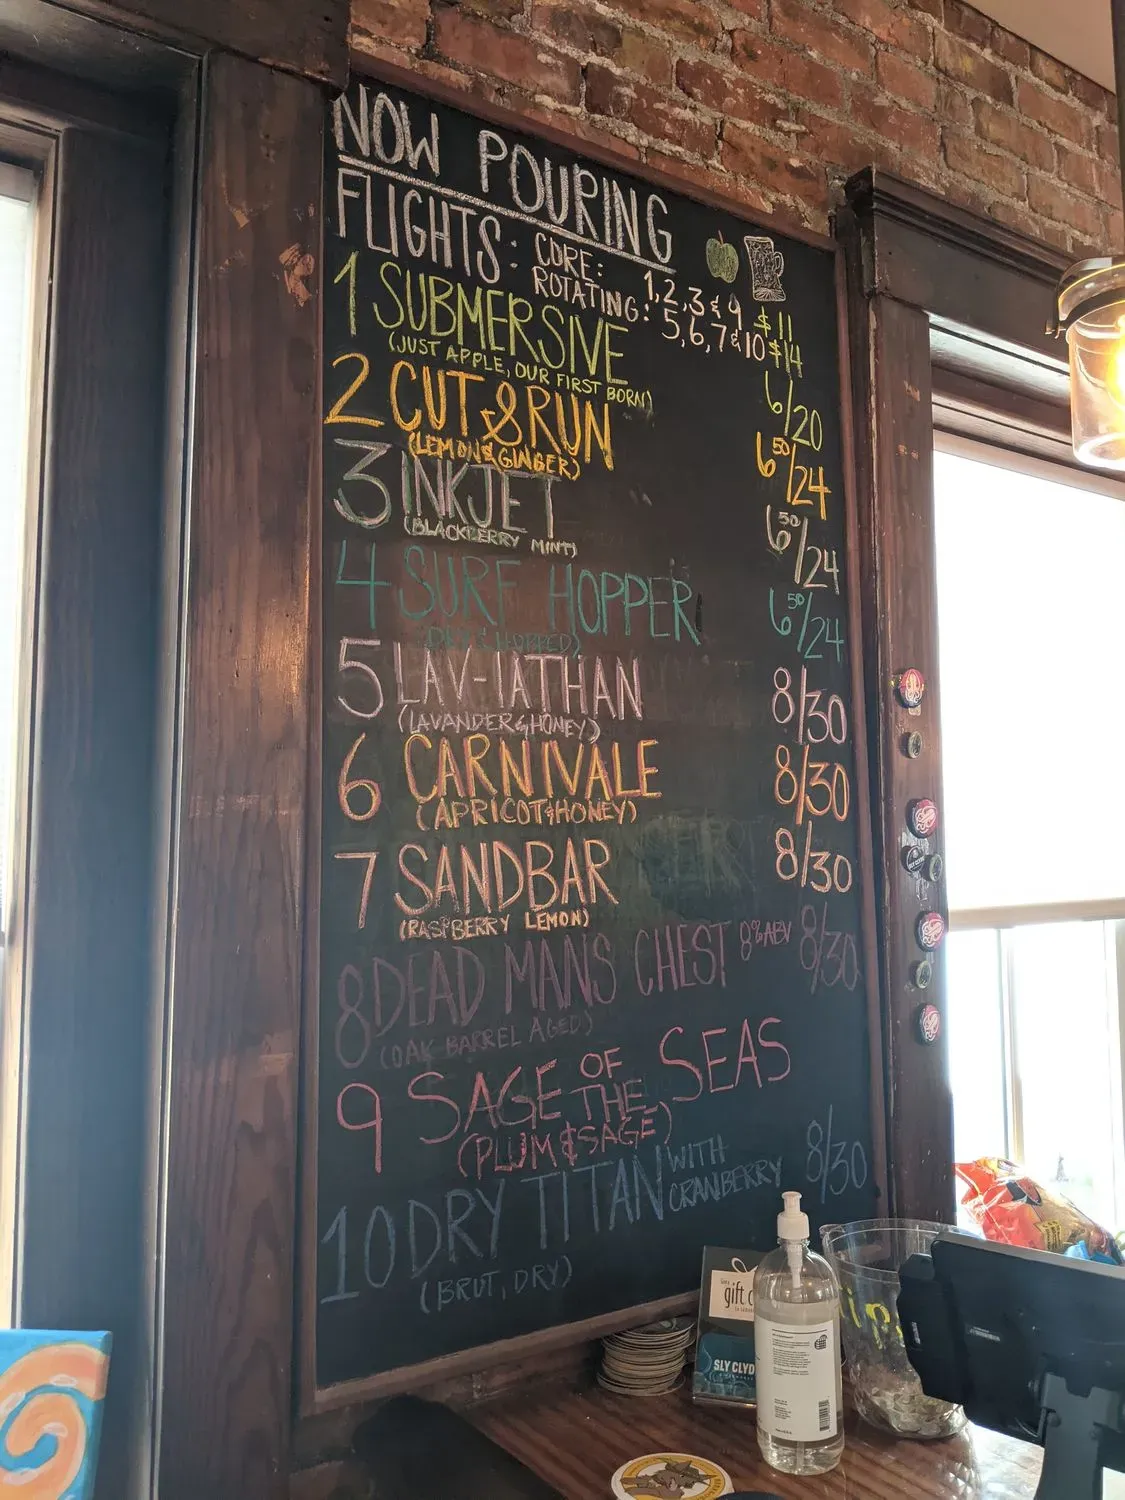 NOW POURING
FLIGHTS: CORE: 1,2,3 & 9 $11
ROTATING: 5,6,7 & 10 $14
1 SUBMERSIVE 6/20
(JUST APPLE, OUR FIRST BORN)
2 CUT & RUN 6⁵⁰/24
(LEMON & GINGER)
3 INKJET 6⁵⁰/24
(BLACKBERRY MINT)
4 SURF HOPPER 6⁵⁰/24
(DRY & HOPPED)
5 LAV-IATHAN 8/30
(LAVANDER & HONEY)
6 CARNIVALE 8/30
(APRICOT & HONEY)
7 SANDBAR 8/30
(RASPBERRY LEMON)
8 DEAD MANS CHEST 8% ABV 8/30
(OAK BARREL AGED)
9 SAGE OF THE SEAS
(PLUM & SAGE)
10 DRY TITAN WITH CRANBERRY 8/30
(BRUT, DRY)
gift
SLY CLYD